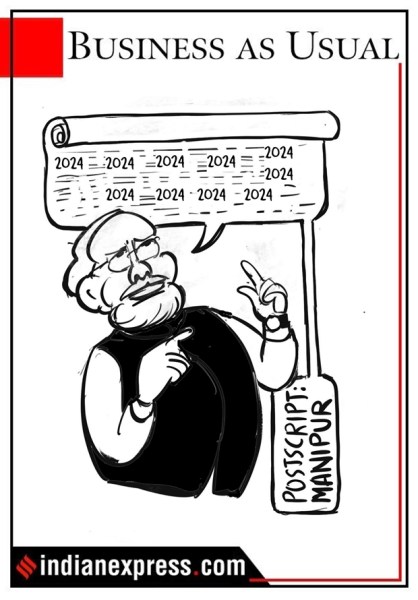 BUSINESS AS USUAL
2024 2024 2024 2024 2024
2024
2024 2024 2024 2024
POSTSCRIPT:
MANIPUR
indianexpress.com